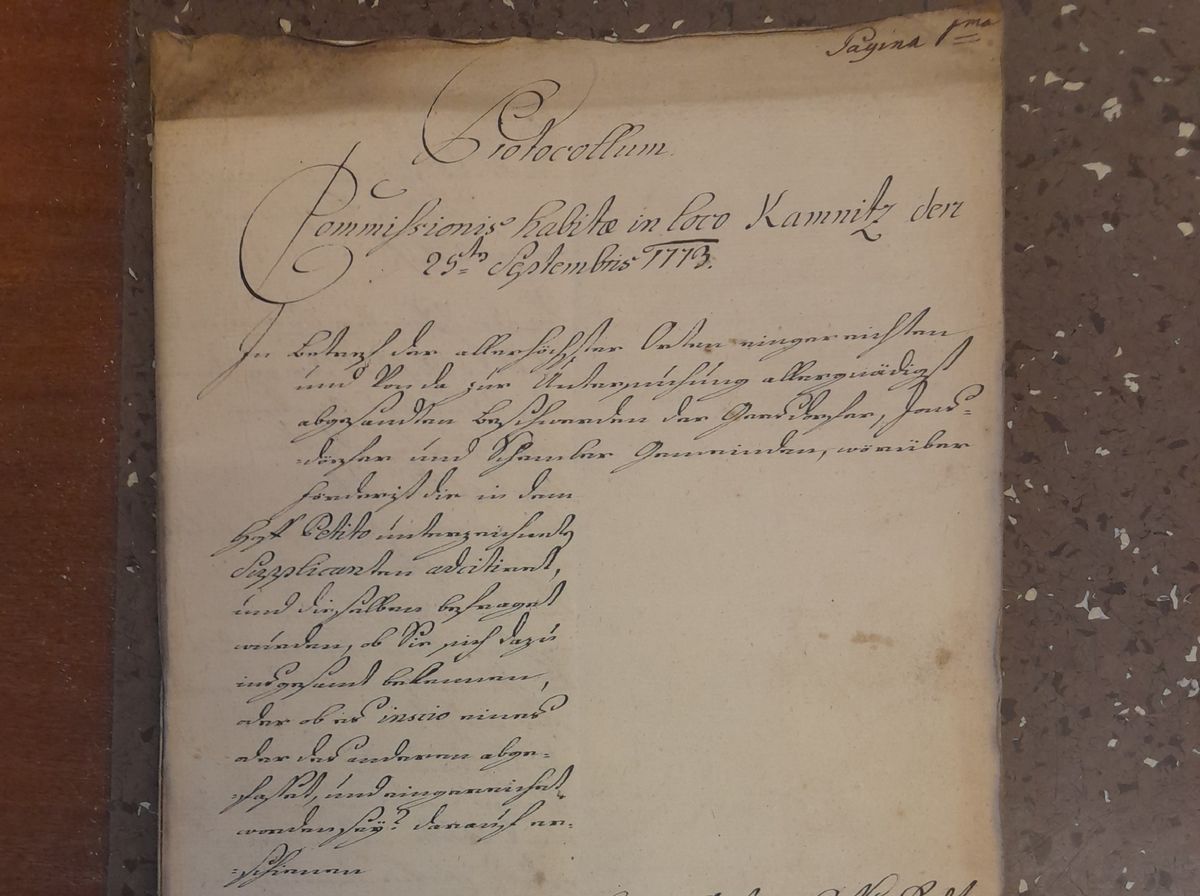 Pagina 1ma
Protocollum
Commissionis habitæ in loco Kamnitz den
25ten Septembris 1773.
In Betreff der allerhöchster Orten eingereichten
und von da zur Untersuchung allergnädigst
abgesandten Beschwerden der
=dörfer und Gemeinden, worüber
förderist die in dem
Hoff Petito unterzeichnete
Supplicanten adcitiret,
und dieselben befraget
wurden, ob Sie sich dazu
insgesamt bekennen,
oder ob es inscio eines
oder des anderen abge=
=fasset, und eingereichet
worden sey? darauf er=
=schienen